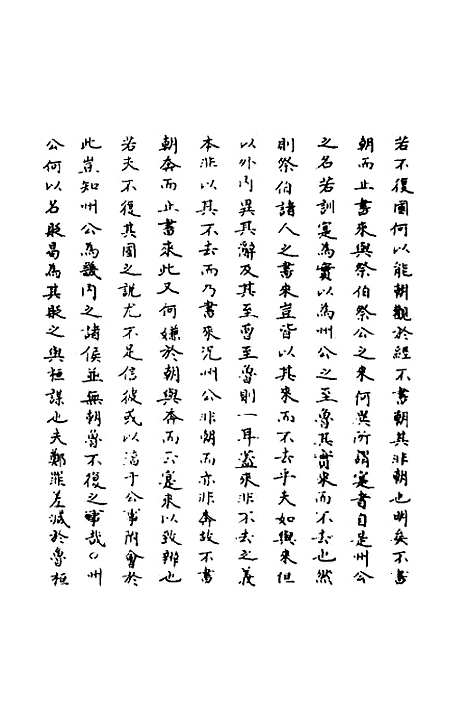 若不復國何以能朝觀於經不書朝其非朝也明矣不書
朝而止書來與祭伯祭公之來何異所謂寔者自是州公
之名若訓寔為實以為州公之至魯其實來而不去也然
則祭伯諸人之書來豈皆以其來而不去乎夫如與來但
以外內異其辭及其至魯至魯則一耳蓋來非不去之義
本非以其不去而乃書來況州公非朝而亦非奔故不書
朝奔而止書來此又何嫌於朝與奔而云寔來以致辨也
若夫不復其國之說尤不足信彼或以淳于公事附會於
此豈知州公為畿內之諸侯並無朝魯不復之事哉〻州
公何以名貶曷為其貶之與桓謀也夫鄭罪差減於魯桓